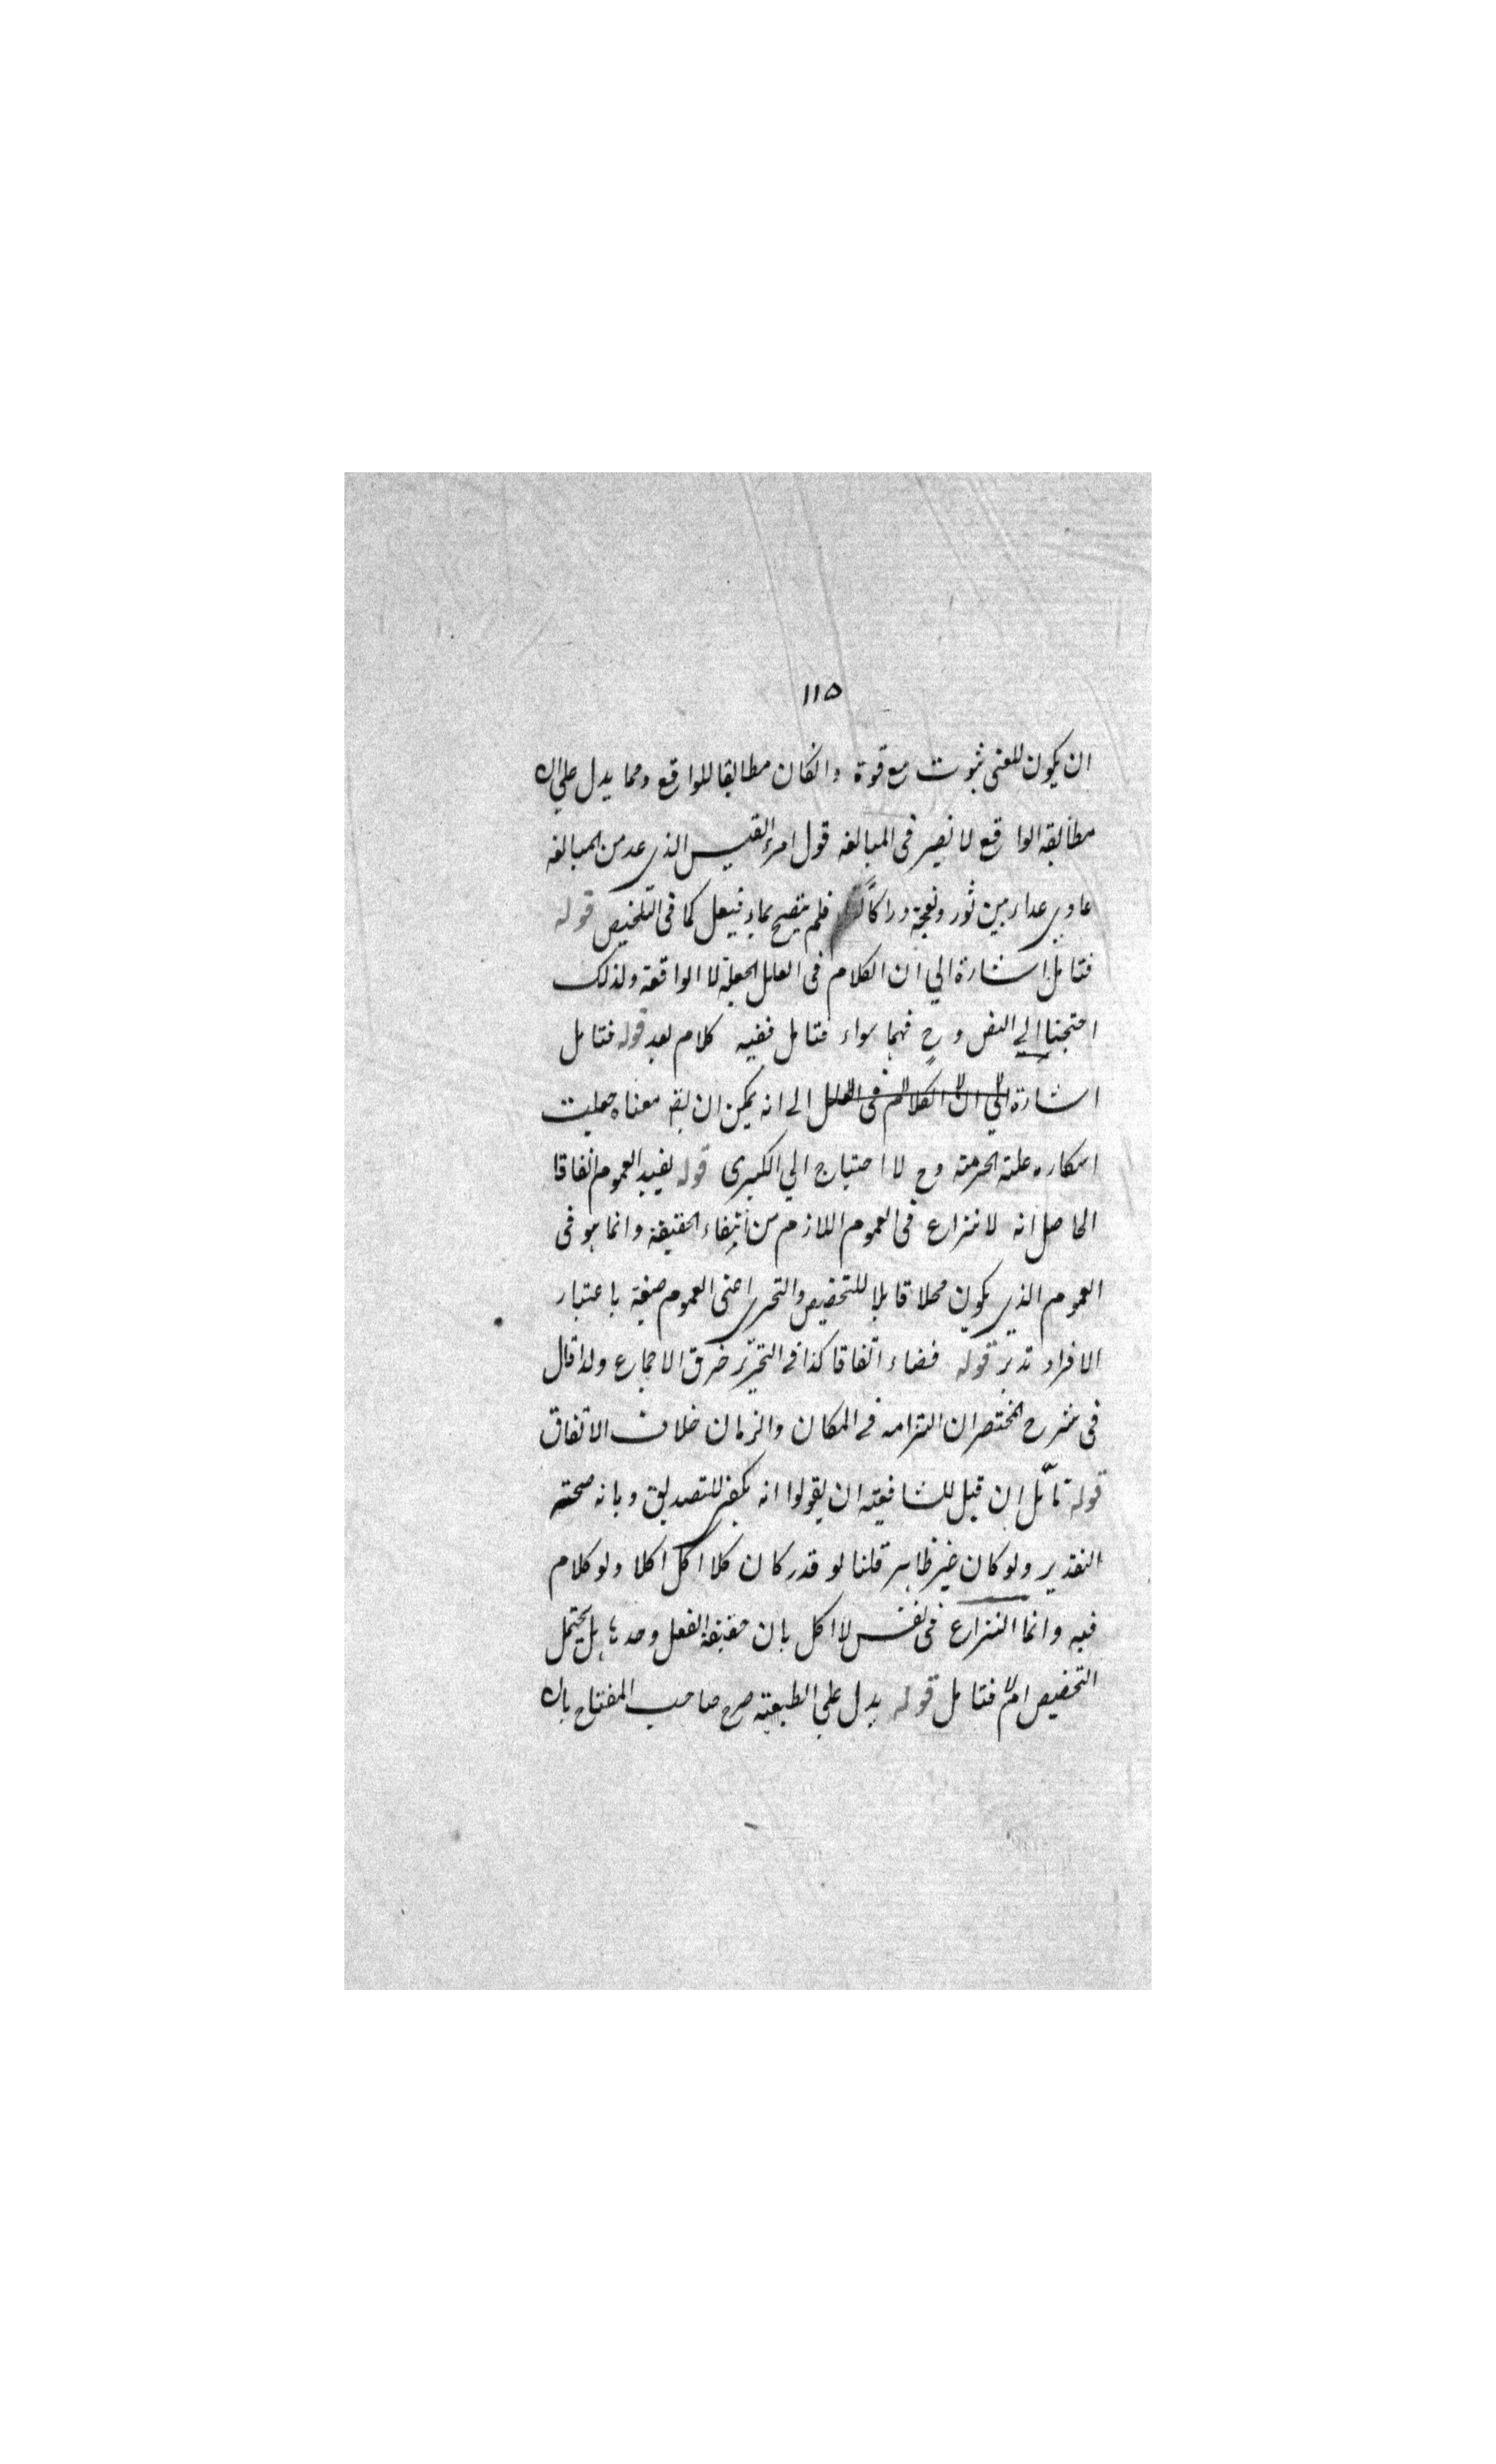 ١١٥
ان يكون للمعنى ثبوت مع قوة وانكان مطابقا للواقع ومما يدل على ان
مطابقة الواقع لا تضير فى المبالغه قول امرء القيس الذى عد من المبالغه
عادى عداء بين ثور ونعجة دراكاً فلم ينضح بماء فيغسل كما فى التلخيص قوله
فتامل اشارة الي ان الكلام فى العلل الجعلية لا الواقعة ولذلك
احتجنا الي النص وح فهما سواء فتامل ففيه كلام بعد قوله فتامل
اشارة الي ان الكلام فى العلل الے انه يمكن ان يقم معناه جعليت
اسكاره علته الحرمته وح لا احتياج الي الكبرى قوله يفيد العموم اتفاقا
الحاصل انه لا نزاع فى العموم اللازم من انتفاء الحقيقة وانما هو فى
العموم الذى يكون محلا قابلا للتخصيص والتحرى اعنى العموم صيغة باعتبار
الافراد تدبر قوله قضاء اتفاقا كذا فے التحرير خرق الاجماع ولذا قال
فى شرح المختصر ان التزامه فے المكان والزمان خلاف الاتفاق
قوله تأمّل ان قيل للشافعيته ان يقولوا انه يكفى للتصديق وبانه صحته
التقدير ولو كان غير ظاهر قلنا لو قدر كان كلا اكل اكلا ولو كلام
فيه وانما النزاع فى نفس لا اكل بان حقيقة الفعل وحدها هل يحتمل
التخصيص ام لا فتامل قوله يدل على الطبعيته صرح صاحب المفتاح بان